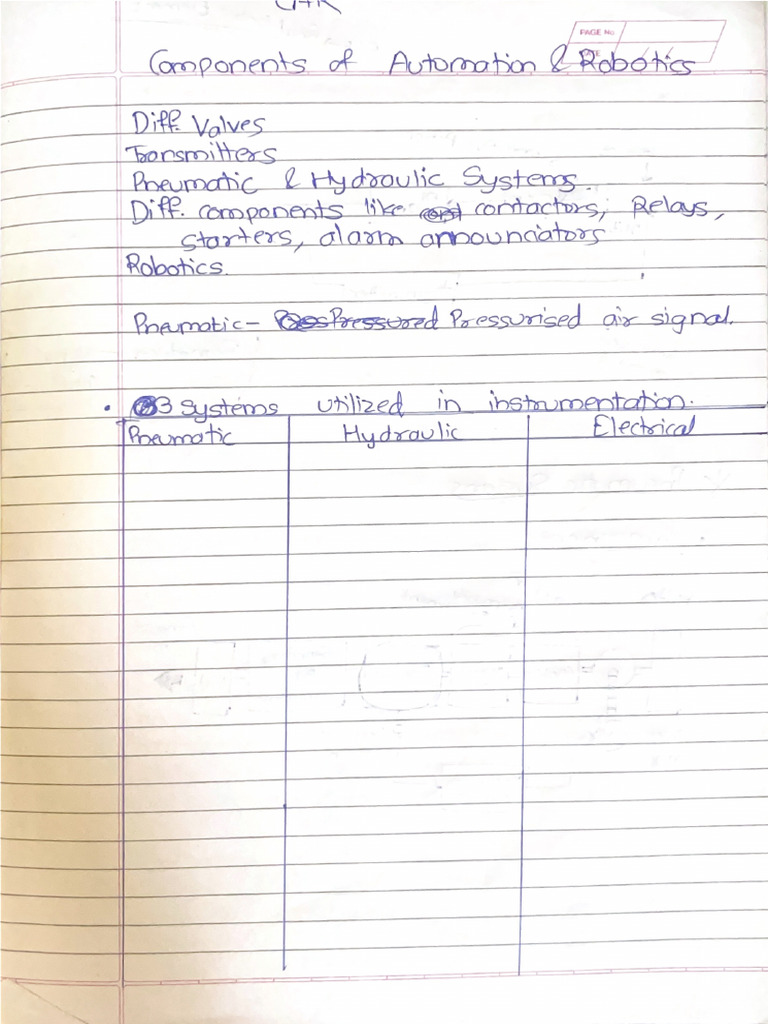 PAGE No.
Components of Automation & Robotics
Diff. Valves
Transmitters
Pneumatic & Hydraulic Systems.
Diff. components like contactors, Relays,
starters, alarm announciators
Robotics.
Pneumatic - Pressured Pressurised air signal.
• 3 Systems utilized in instrumentation.
Pneumatic Hydraulic Electrical